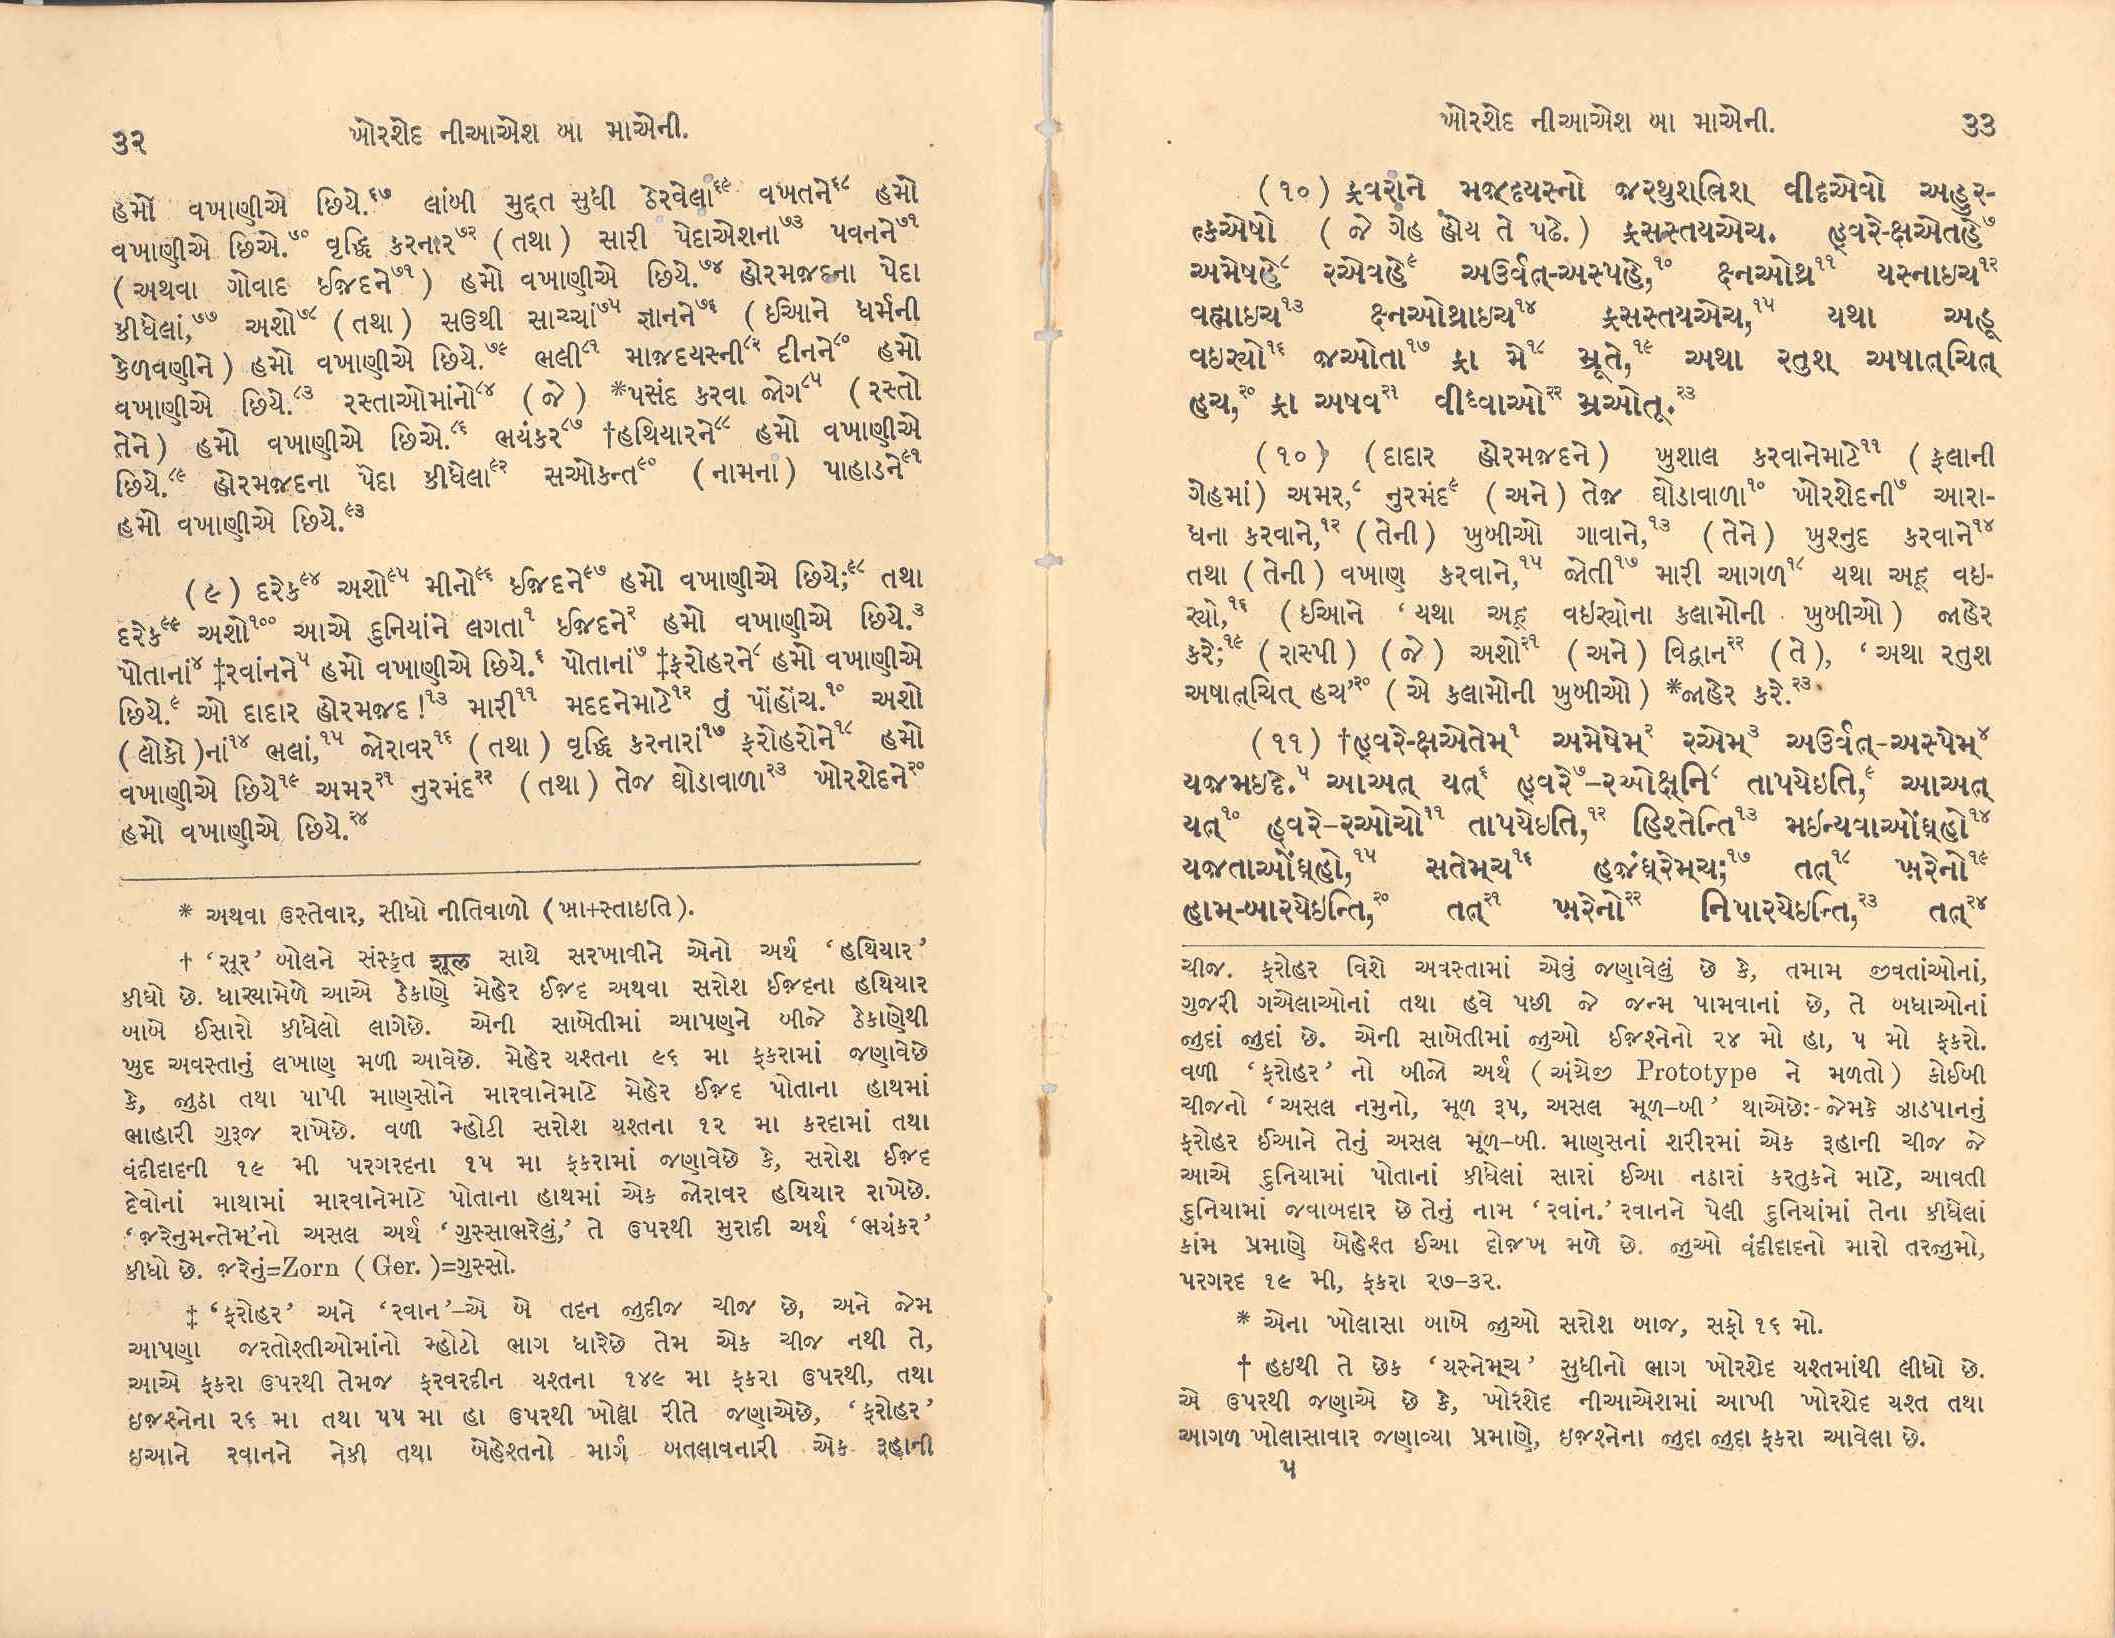 ૩૨
ખોરશેદ નીઆએશ બા માએની.
હમો વખાણીએ છિયે.૬૭ લાંબી મુદ્દત સુધી ઠેરવેલાં૬૯ વખતને૬૮ હમો
વખાણીએ છિએ.૭૦ વૃદ્ધિ કરનાર૭૨ (તથા) સારી પેદાએશના૭૩ પવનને૭૧
(અથવા ગોવાદ ઈજ઼દને૭૧) હમો વખાણીએ છિયે.૭૪ હોરમજ઼દના પેદા
કીધેલાં,૭૭ અશો૭૮ (તથા) સઉથી સાચ્ચાં૭૫ જ્ઞાનને૭૬ (ઈઆને ધર્મની
કેળવણીને) હમો વખાણીએ છિયે.૭૯ ભલી૮૧ માજ઼દયસ્ની૮૨ દીનને૮૦ હમો
વખાણીએ છિયે.૮૩ રસ્તાઓમાંનો૮૪ (જે) *પસંદ કરવા જોગ૮૫ (રસ્તો
તેને) હમો વખાણીએ છિએ.૮૬ ભયંકર૮૭ †હથિયારને૮૮ હમો વખાણીએ
છિયે.૮૯ હોરમજ઼દના પેદા કીધેલા૯૨ સઓકન્ત૯૦ (નામનાં) પાહાડને૯૧
હમો વખાણીએ છિયે.૯૩
(૯) દરેક૯૪ અશો૯૫ મીનો૯૬ ઈજ઼દને૯૭ હમો વખાણીએ છિયે;૯૮ તથા
દરેક૯૯ અશો૧૦૦ આએ દુનિયાંને લગતા૧ ઈજ઼દને૨ હમો વખાણીએ છિયે.૩
પોતાનાં૪ ‡રવાંનને૫ હમો વખાણીએ છિયે.૬ પોતાનાં૭ ‡ફરોહરને૮ હમો વખાણીએ
છિયે.૯ ઓ દાદાર હોરમજ઼દ!૧૩ મારી૧૧ મદદનેમાટે૧૨ તું પોંહોંચ.૧૦ અશો
(લોકો)નાં૧૪ ભલાં,૧૫ જોરાવર૧૬ (તથા) વૃદ્ધિ કરનારાં૧૭ ફરોહરોને૧૮ હમો
વખાણીએ છિયે૧૯ અમર૨૧ નુરમંદ૨૨ (તથા) તેજ ઘોડાવાળા૨૩ ખોરશેદને૨૦
હમો વખાણીએ છિયે.૨૪
* અથવા ઉસ્તેવાર, સીધો નીતિવાળો (ખ઼ા+સ્તાઇતિ).
† ‘સૂર’ બોલને સંસ્કૃત शूल સાથે સરખાવીને એનો અર્થ ‘હથિયાર’
કીધો છે. ધારયામેળે આએ ઠેકાણે મેહેર ઈજ઼દ અથવા સરોશ ઈજ઼દના હથિયાર
બાબે ઈસારો કીધેલો લાગેછે. એની સાબેતીમાં આપણને બીજે ઠેકાણેથી
ખુદ અવસ્તાનું લખાણ મળી આવેછે. મેહેર યશ્તના ૯૬ મા ફકરામાં જણાવેછે
કે, જુઠા તથા પાપી માણસોને મારવાનેમાટે મેહેર ઈજ઼દ પોતાના હાથમાં
ભાહારી ગુરૂજ રાખેછે. વળી મ્હોટી સરોશ યશ્તના ૧૨ મા કરદામાં તથા
વંદીદાદની ૧૯ મી પરગરદના ૧૫ મા ફકરામાં જણાવેછે કે, સરોશ ઈજ઼દ
દેવોનાં માથામાં મારવાનેમાટે પોતાના હાથમાં એક જોરાવર હથિયાર રાખેછે.
‘જ઼રેનુમન્તેમ’નો અસલ અર્થ ‘ગુસ્સાભરેલું,’ તે ઉપરથી મુરાદી અર્થ ‘ભયંકર’
કીધો છે. જ઼રેનું=Zorn (Ger.)=ગુસ્સો.
‡ ‘ફરોહર’ અને ‘રવાન’–એ બે તદન જુદીજ ચીજ છે, અને જેમ
આપણા જરતોશ્તીઓમાંનો મ્હોટો ભાગ ધારેછે તેમ એક ચીજ નથી તે,
આએ ફકરા ઉપરથી તેમજ ફરવરદીન યશ્તના ૧૪૯ મા ફકરા ઉપરથી, તથા
ઇજ઼શ્નેના ૨૬ મા તથા ૫૫ મા હા ઉપરથી ખોલ્લી રીતે જણાએછે, ‘ફરોહર’
ઇઆને રવાનને નેકી તથા બેહેશ્તનો માર્ગ બતલાવનારી એક રૂહાની
ખોરશેદ નીઆએશ બા માએની.
૩૩
(૧૦) ફ્રવરાંને મજ઼્દયસ્નો જ઼રથુશત્રિશ્ વીદએવો અહુર-
ત્કએષો (જે ગેહ હોય તે પઢે.) ફ્રસસ્તયએચ. હ્વરે-ક્ષએતહે૭
અમેષહે૮ રએવહે૯ અઉર્વત્-અસ્પહે,૧૦ ક્ષ્નઓથ્ર૧૧ યસ્નાઇચ૧૨
વહ્માઇચ૧૩ ક્ષ્નઓથ્રાઇચ૧૪ ફ્રસસ્તયએચ,૧૫ યથા અહૂ
વઇર્યો૧૬ જ઼ઓતા૧૭ ફ્રા મે૧૮ મ્રૂતે,૧૯ અથા રતુશ્ અષાત્ચિત્
હચ,૨૦ ફ્રા અષવ૨૧ વીધ્વાઓ૨૨ મ્રઓતૂ.૨૩
(૧૦) (દાદાર હોરમજ઼દને) ખુશાલ કરવાનેમાટે૧૧ (ફલાની
ગેહમાં) અમર,૮ નુરમંદ૯ (અને) તેજ઼ ઘોડાવાળા૧૦ ખોરશેદની૭ આરા-
ધના કરવાને,૧૨ (તેની) ખુબીઓ ગાવાને,૧૩ (તેને) ખુશ્નુદ કરવાને૧૪
તથા (તેની) વખાણ કરવાને,૧૫ જોતી૧૭ મારી આગળ૧૮ યથા અહૂ વઇ-
ર્યો,૧૬ (ઈઆને ‘યથા અહૂ વઇર્યોના કલામોની ખુબીઓ) જાહેર
કરે;૧૯ (રાસ્પી) (જે) અશો૨૧ (અને) વિદ્વાન૨૨ (તે), ‘અથા રતુશ
અષાત્ચિત્ હચ’૨૦ (એ કલામોની ખુબીઓ) *જાહેર કરે.૨૩
(૧૧) †હ્વરે-ક્ષએતેમ્૧ અમેષેમ્૨ રએમ્૩ અઉર્વત્-અસ્પેમ્૪
યજ઼મઇદે.૫ આઅત્ યત્૬ હ્વરે૭–રઓક્ષ્નિ૮ તાપયેઇતિ,૯ આઅત્
યત્૧૦ હ્વરે–રઓચો૧૧ તાપયેઇતિ,૧૨ હિશ્તેન્તિ૧૩ મઇન્યવાઓંઘ્હો૧૪
યજ઼તાઓંઘ્હો,૧૫ સતેમ્ચ૧૬ હજ઼ંઘ્રેમ્ચ;૧૭ તત્૧૮ ખ઼રેનો૧૯
હામ્-બારયેઇન્તિ,૨૦ તત્૨૧ ખ઼રેનો૨૨ નિપારયેઇન્તિ,૨૩ તત્૨૪
ચીજ. ફરોહર વિશે અવસ્તામાં એવું જણાવેલું છે કે, તમામ જીવતાંઓનાં,
ગુજરી ગએલાઓનાં તથા હવે પછી જે જન્મ પામવાનાં છે, તે બધાઓનાં
જુદાં જુદાં છે. એની સાબેતીમાં જુઓ ઈજ઼શ્નેનો ૨૪ મો હા, ૫ મો ફકરો.
વળી ‘ફરોહર’ નો બીજો અર્થ (અંગ્રેજી Prototype ને મળતો) કોઈબી
ચીજનો ‘અસલ નમુનો, મૂળ રૂપ, અસલ મૂળ–બી’ થાએછે:-જેમકે ઝાડપાનનું
ફરોહર ઈઆને તેનું અસલ મૂળ–બી. માણસનાં શરીરમાં એક રૂહાની ચીજ જે
આએ દુનિયામાં પોતાનાં કીધેલાં સારાં ઈઆ નઠારાં કરતુકને માટે, આવતી
દુનિયામાં જવાબદાર છે તેનું નામ ‘રવાંન.’ રવાનને પેલી દુનિયાંમાં તેના કીધેલાં
કાંમ પ્રમાણે બેહેશ્ત ઈઆ દોજ઼ખ મળે છે. જુઓ વંદીદાદનો મારો તરજુમો,
પરગરદ ૧૯ મી, ફકરા ૨૭–૩૨.
* એના ખોલાસા બાબે જુઓ સરોશ બાજ, સફો ૧૬ મો.
† હઇથી તે છેક ‘યસ્નેમ્ચ’ સુધીનો ભાગ ખોરશેદ યશ્તમાંથી લીધો છે.
એ ઉપરથી જણાએ છે કે, ખોરશેદ નીઆએશમાં આખી ખોરશેદ યશ્ત તથા
આગળ ખોલાસાવાર જણાવ્યા પ્રમાણે, ઇજ઼શ્નેના જુદા જુદા ફકરા આવેલા છે.
૫